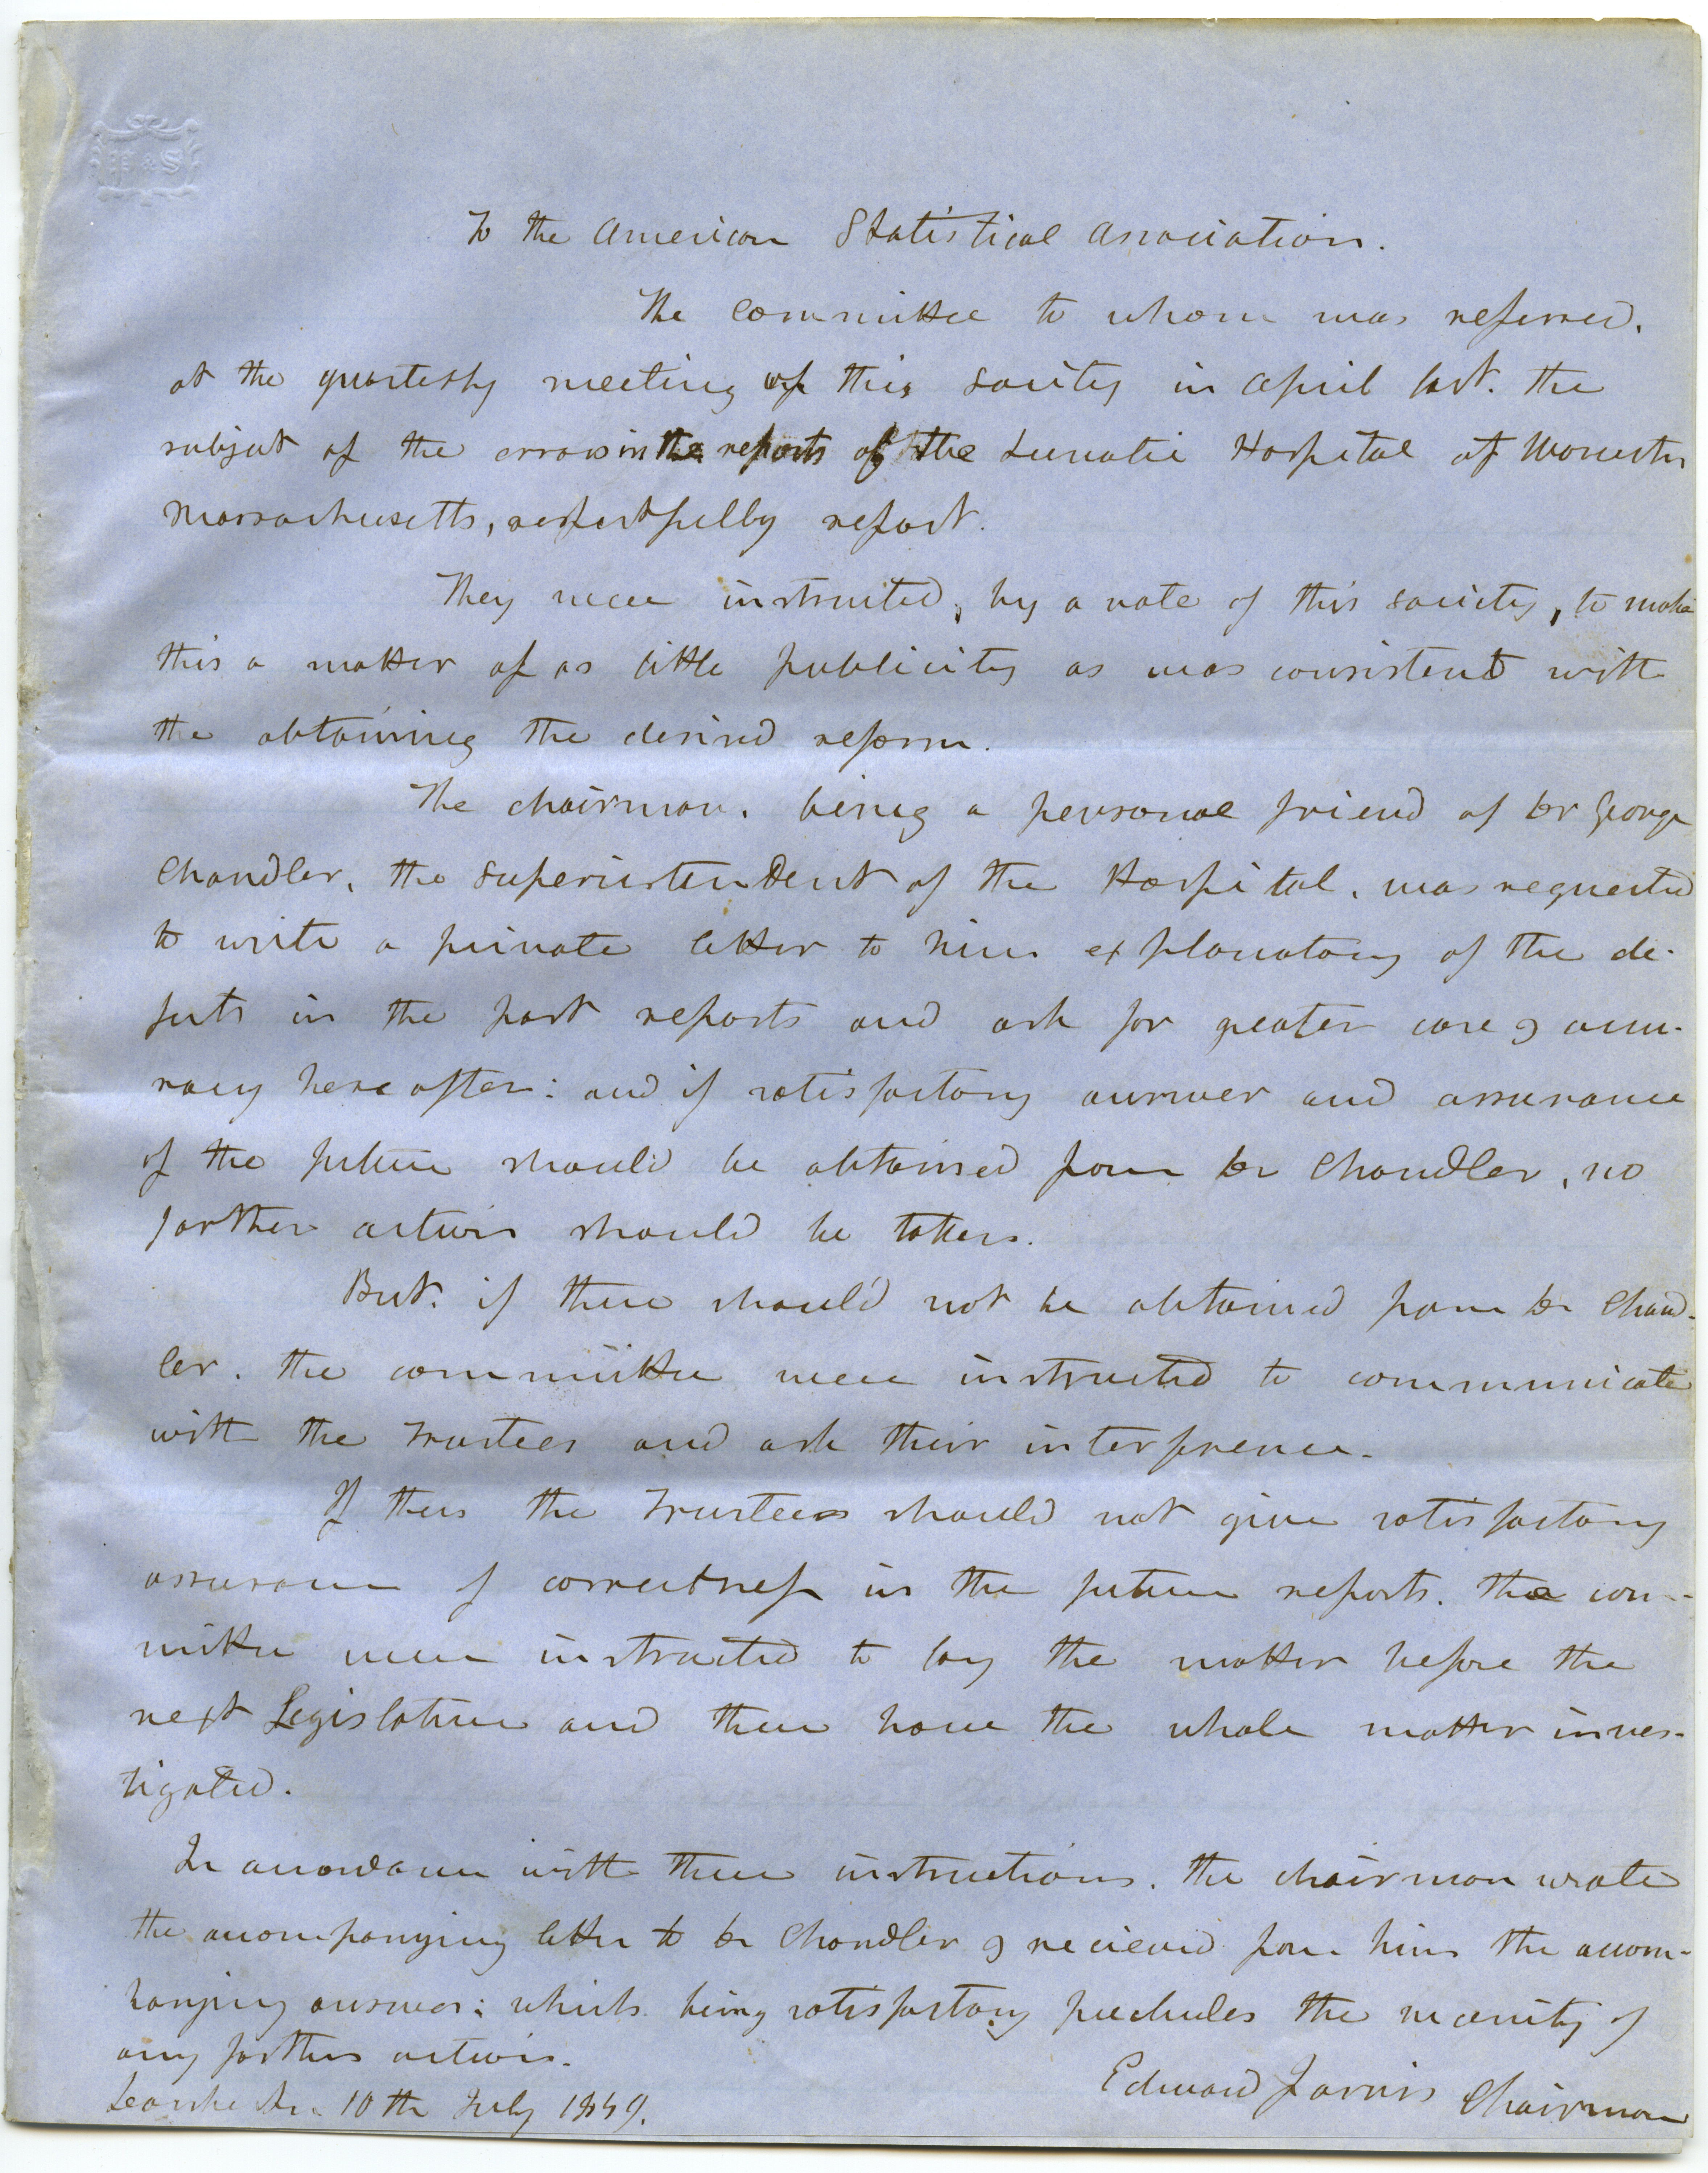 H & S
To the American Statistical Association.
The Committee to whom was referred,
at the quarterly meeting of this society in April last. the
subject of the errors in the reports of the Lunatic Hospital at Worcester
Massachusetts, respectfully report.
They were instructed, by a vote of this society, to make
this a matter of as little publicity as was consistent with
the obtaining the desired reform.
The chairman. being a personal friend of Dr George
Chandler, the superintendent of the Hospital, was requested
to write a private letter to him explanatory of the de-
fects in the past reports and ask for greater care & accu-
racy hereafter: and if satisfactory answer and assurance
of the future should be obtained from Dr Chandler, no
farther action should be taken.
But. if these should not be obtained from Dr Chand-
ler. the committee were instructed to communicate
with the Trustees and ask their interference.
If then the Trustees should not give satisfactory
assurance of correctness in the future reports. the com-
mittee were instructed to lay the matter before the
next Legislature and there have the whole matter inves-
tigated.
In accordance with these instructions. the chairman wrote
the accompanying letter to Dr Chandler & recieved from him the accom-
panying answer: which being satisfactory precludes the necessity of
any farther action.
Edward Jarvis Chairman
Dorchester 10th July 1849.